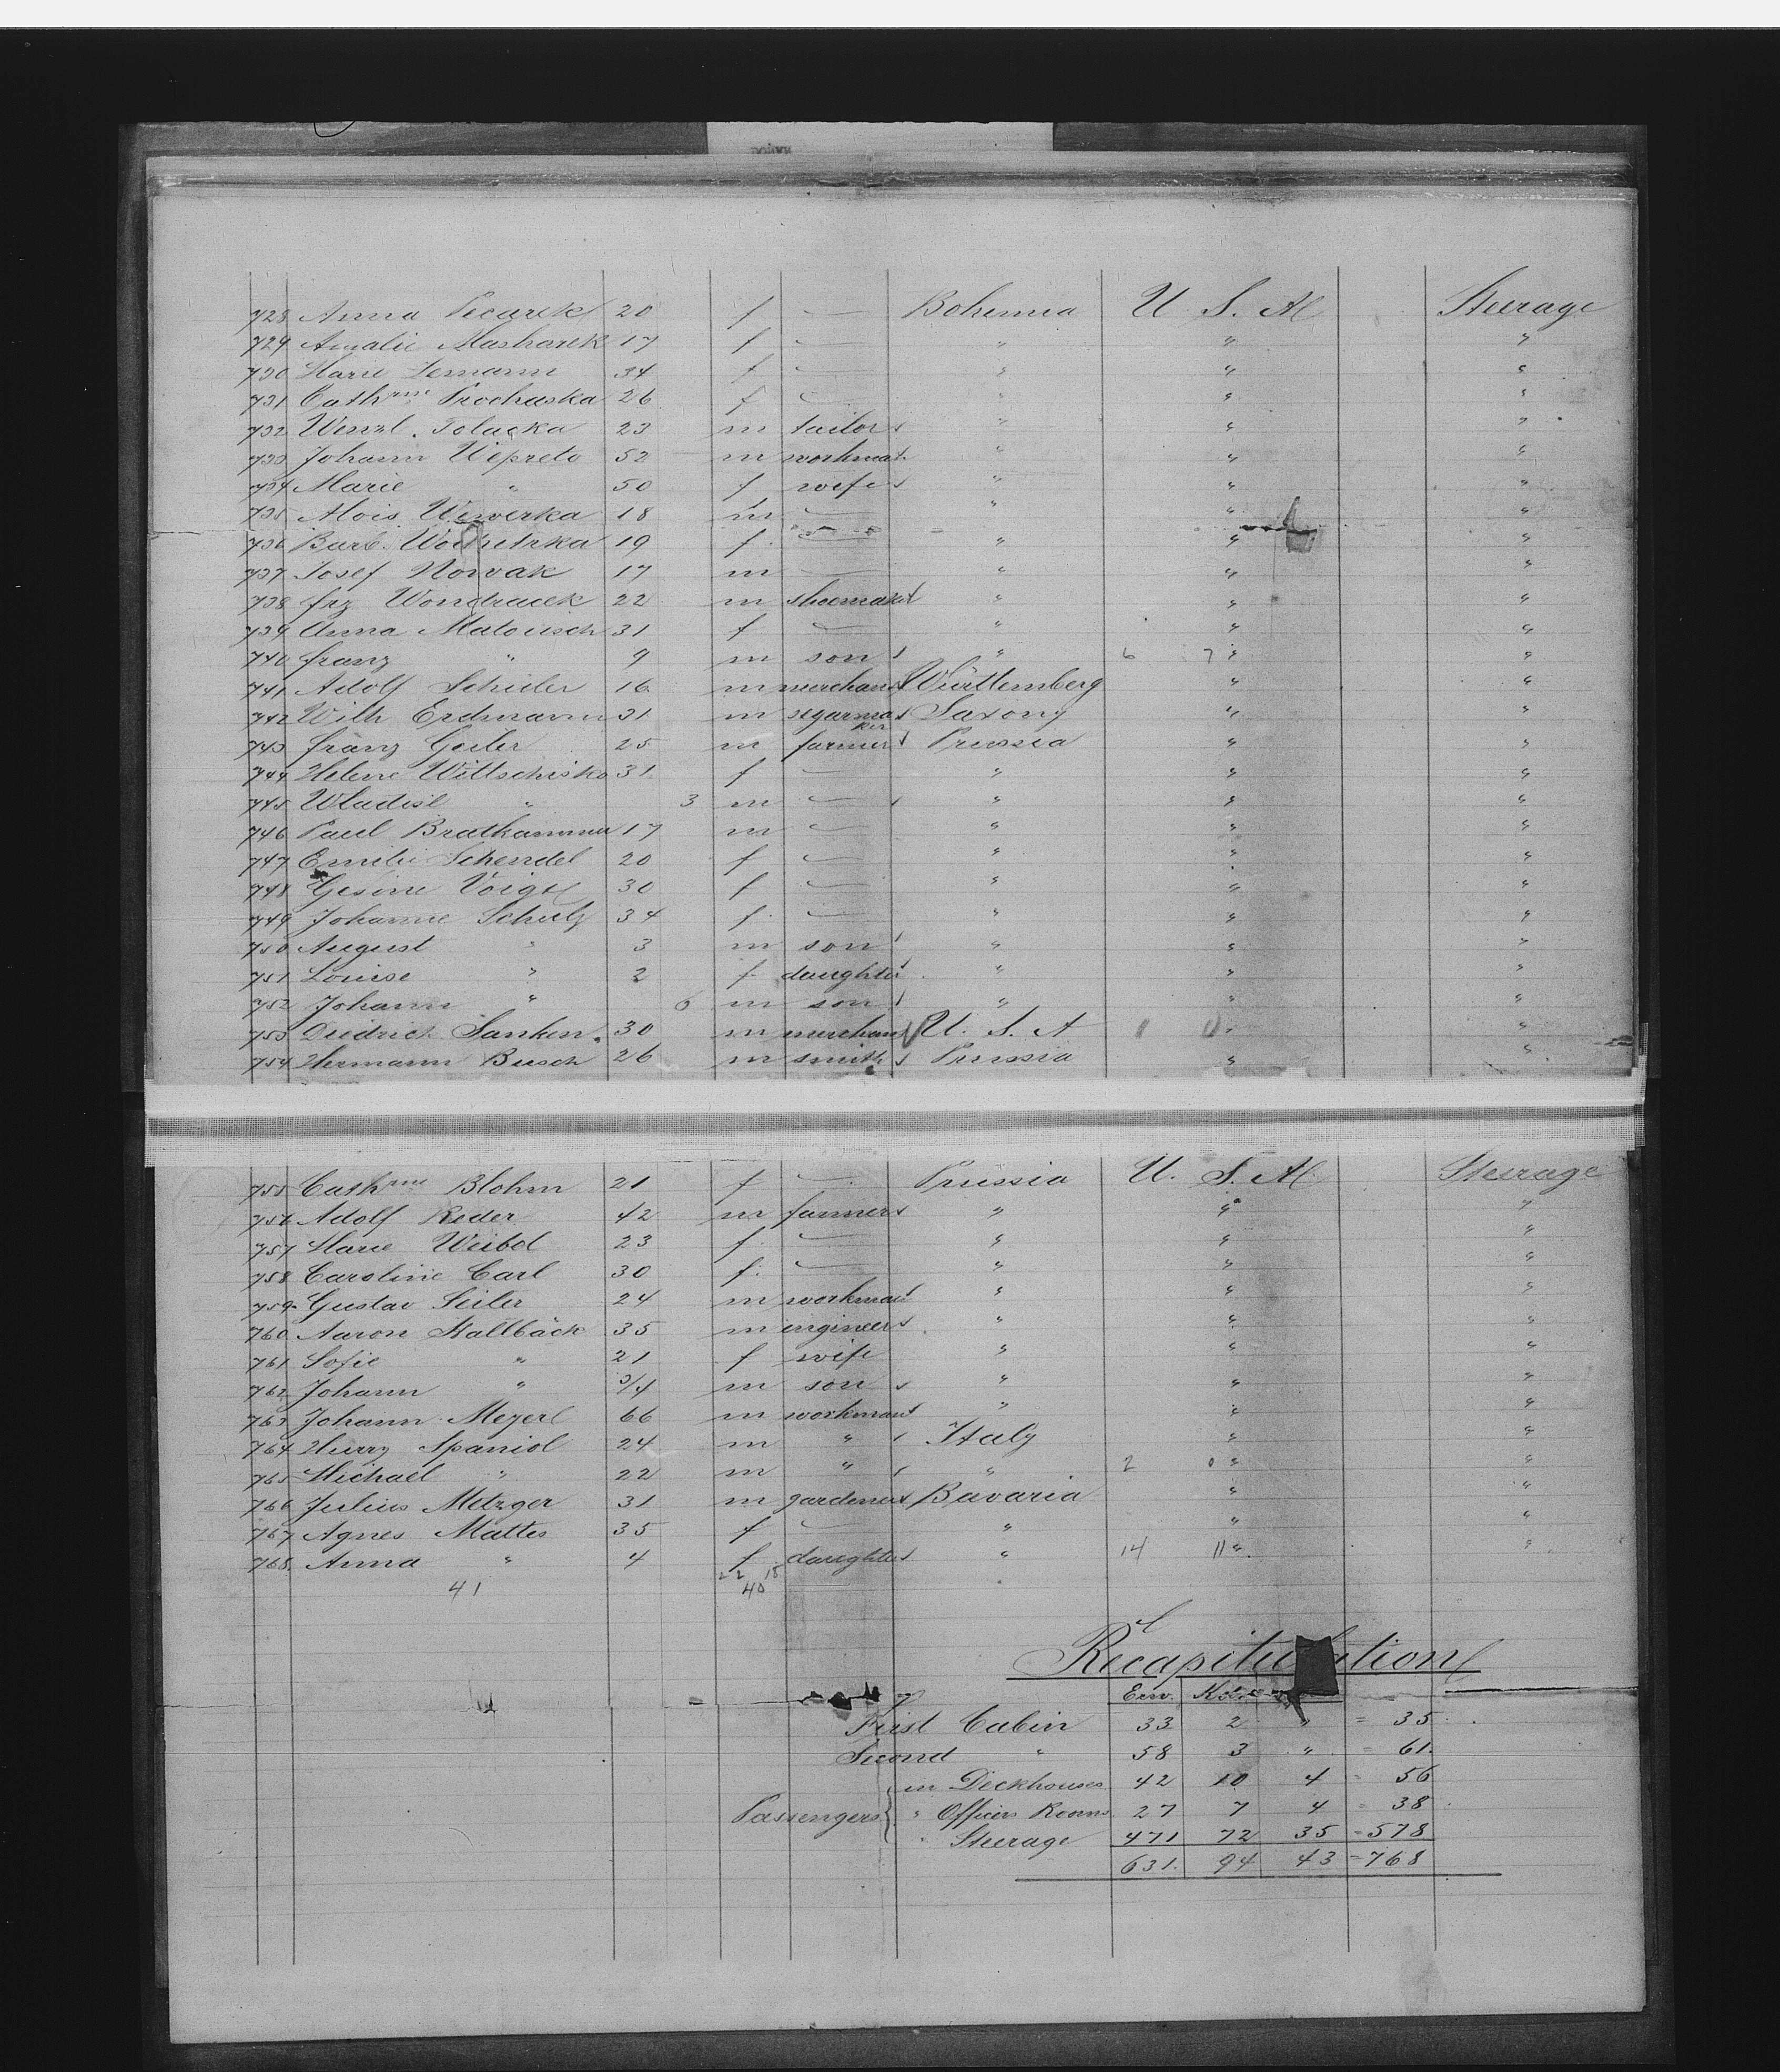 728 Anna Picarek 20 f — Bohemia U. S. A Steerage
729 Amalie Masharek 17 f — " " "
730 Marie Lemann 34 f — " " "
731 Cathrne Prochaska 26 f — " " "
732 Wenzl. Polacka 23 m tailor " " "
733 Johann Wepreto 52 m workman " " "
734 Marie " 50 f wife " " "
735 Alois Wewerka 18 m — " " "
736 Barb. Wochetrka 19 f — " " "
737 Josef Nowak 17 m — " " "
738 frz Wondracek 22 m shoemaker " " "
739 Anna Matousch 31 f — " " "
740 franz " 9 m son " 6 7 " "
741 Adolf Schuler 16 m merchant Württemberg " "
742 Wilh Erdmann 31 m segarmaker Saxony " "
743 franz Geiler 25 m farmer Prussia " "
744 Helene Wittschisko 31 f — " " "
745 Wladisl " 3 m — " " "
746 Paul Bratkammer 17 m — " " "
747 Emilie Schendel 20 f — " " "
748 Gesine Voigt 30 f — " " "
749 Johanne Schulz 34 f — " " "
750 August " 3 m son " " "
751 Louise " 2 f daughter " " "
752 Johann " 6 m son " " "
753 Diedrich Sanken 30 m merchant U. S. A 1 0 " "
754 Hermann Busch 26 m smith Prussia " "
755 Cathrne Blohm 21 f — Prussia U. S. A. Steerage
756 Adolf Reder 42 m farmer " " "
757 Marie Weibel 23 f — " " "
758 Caroline Carl 30 f — " " "
759 Gustav Seiler 24 m workman " " "
760 Aaron Kallbäck 35 m engineer " " "
761 Sofie " 21 f wife " " "
762 Johann " 3/4 m son " " "
763 Johann Meyerl 66 m workman " " "
764 Harry Spaniol 24 m " Italy " "
765 Michael " 22 m " " 2 0 " "
766 Julius Metzger 31 m gardener Bavaria " "
767 Agnes Mattes 35 f — " " "
768 Anna " 4 f daughter " 14 11 " "
22 18
41 40
Recapitulation
First Cabin 33 2 " = 35
Second " 58 3 " = 61
Passengers { in Deckhouses 42 10 4 = 56
" Officers Rooms 27 7 4 = 38
" Steerage 471 72 35 = 578
631 94 43 = 768